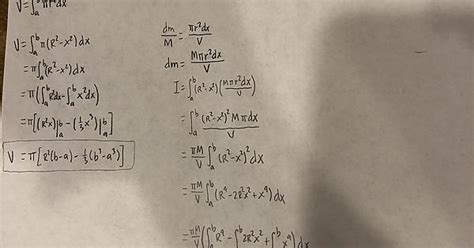 V=∫_a^b πr²dx
V=∫_a^b π(R²-x²)dx
=π∫_a^b(R²-x²)dx
=π(∫_a^b R²dx-∫_a^b x²dx)
=π[(R²x)|_a^b-(⅓x³)|_a^b]
V=π[R²(b-a)-⅓(b³-a³)]
dm/M=πr²dx/V
dm=Mπr²dx/V
I=∫_a^b(R²-x²)(Mπr²dx/V)
=∫_a^b (R²-x²)²Mπdx/V
=πM/V∫_a^b(R²-x²)²dx
=πM/V∫_a^b(R⁴-2R²x²+x⁴)dx
=πM/V(∫_a^b R⁴-∫_a^b 2R²x²+∫_a^b x⁴)dx